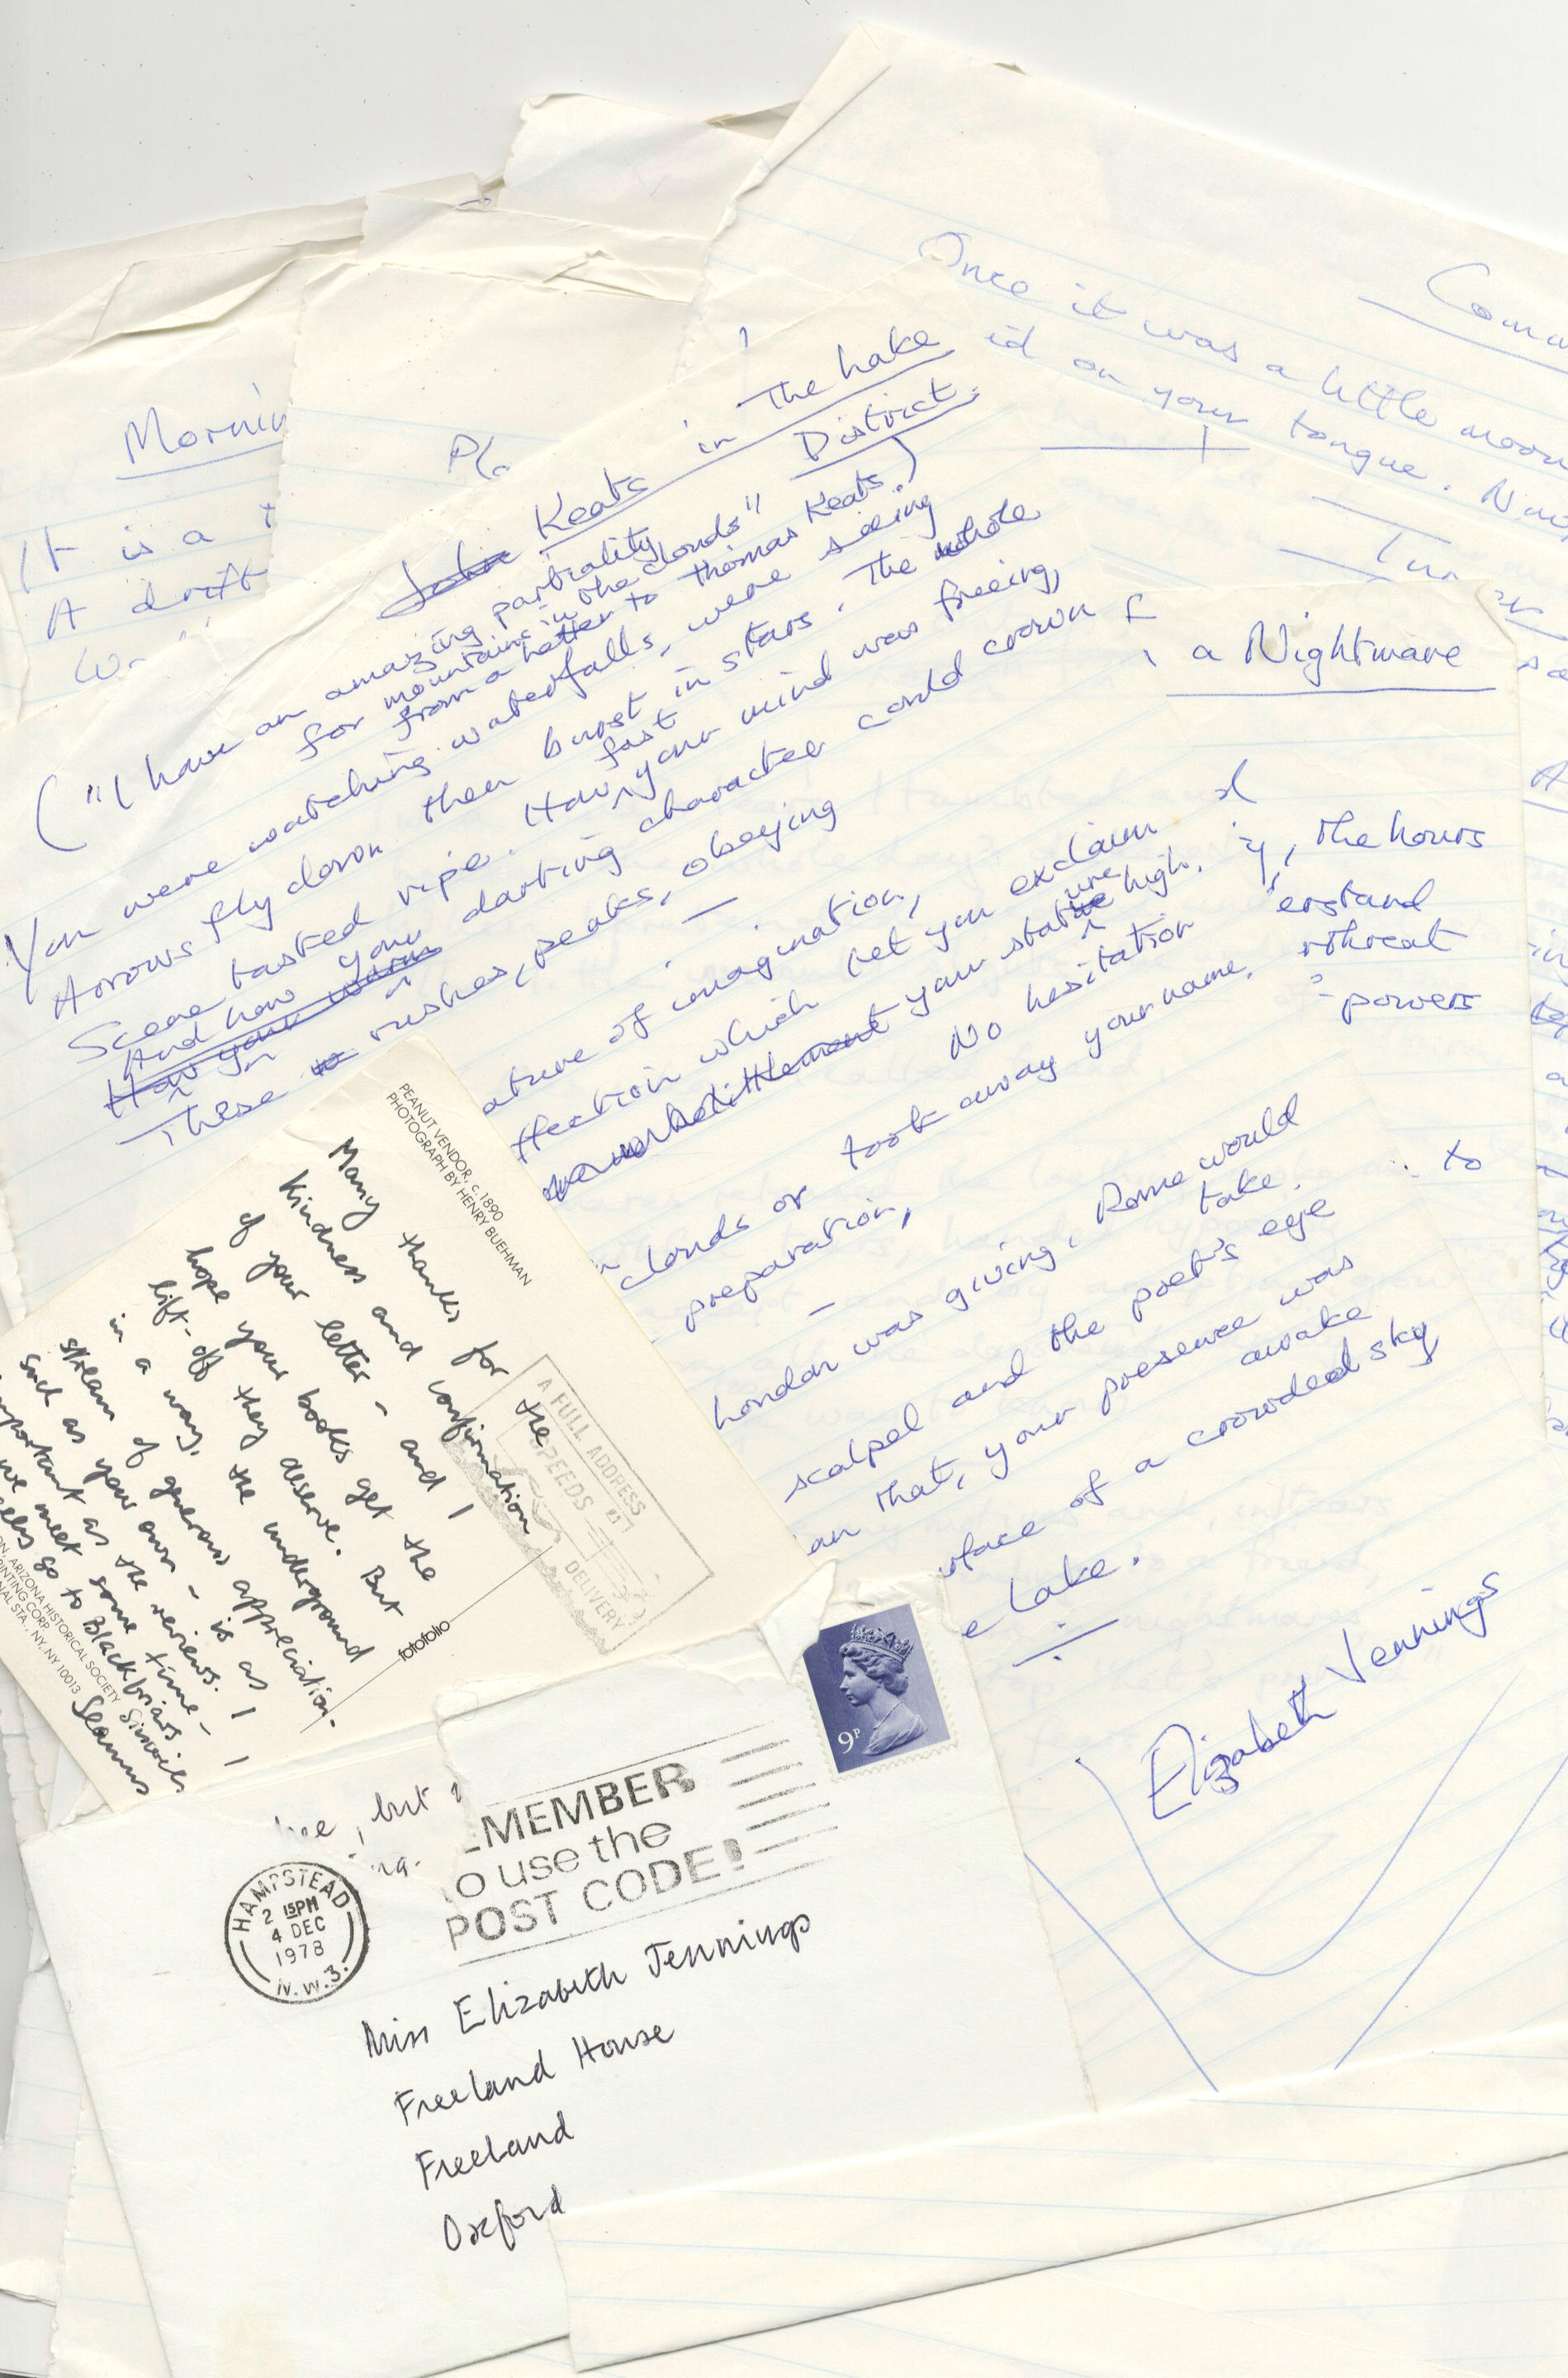 Once it was a little moon
id on your tongue. Now
Mornin
It is a
A drift
Pl
John Keats in The Lake
District.
("I have an amazing partiality
for mountains in the clouds"
from a letter to Thomas Keats.)
You were watching waterfalls, were seeing
Arrows fly down then burst in stars. The whole
Scene tasted ripe. How fast your mind was freeing,
And how your
How your warm darting character could crown
These rushes, peaks, obeying
a Nightmare
y, the hours
erstand
threat
powers
to
ature of imagination,
ffection which let you exclaim
belittlement your stature high.
No hesitation
clouds or took away your name.
preparation,
London was giving, Rome would
take.
scalpel and the poet's eye
an that, your presence was
awake
rface of a crowded sky
e Lake.
Elizabeth Jennings
PEANUT VENDOR, c. 1890
PHOTOGRAPH BY HENRY BUEHMAN
Many thanks for the
kindness and confirmation
of your letter - and I
hope your books get the
lift-off they deserve. But
in a way, the underground
stream of generous appreciation -
such as your own - is as
important as the reviews. I
we meet some time -
go to Blackfriars
Seamus
ARIZONA HISTORICAL SOCIETY
PRINTING CORP.
STA., NY, NY 10013
fotofolio
A FULL ADDRESS
SPEEDS
DELIVERY
9P
but
EMEMBER
to use the
POST CODE!
HAMPSTEAD
2 15PM
4 DEC
1978
N.W.3.
Miss Elizabeth Jennings
Freeland House
Freeland
Oxford